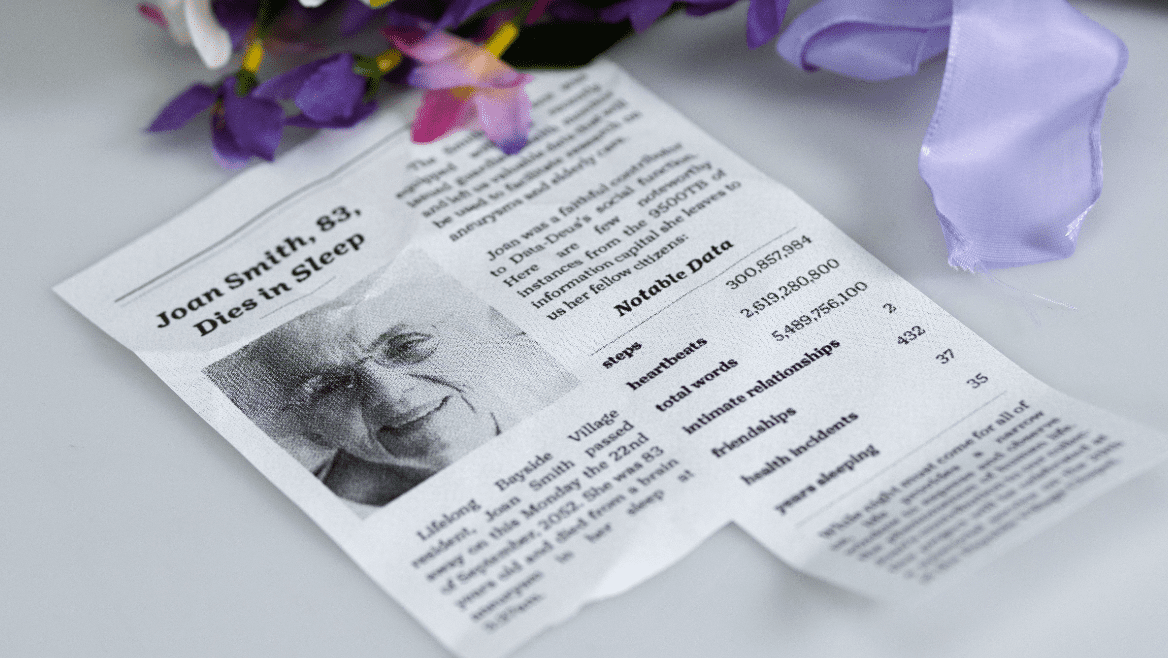 Joan Smith, 83,
Dies in Sleep
Lifelong Bayside Village
resident, Joan Smith passed
away on this Monday the 22nd
of September, 2052. She was 83
years old and died from a brain
aneurysm in her sleep at
and left us valuable data that will
be used to facilitate research in
aneurysms and elderly care.
Joan was a faithful contributor
to Data-Deus's social function.
Here are few noteworthy
instances from the 9500TB of
information capital she leaves to
us her fellow citizens:
Notable Data
steps 300,857,984
heartbeats 2,619,280,800
total words 5,489,756,100
intimate relationships 2
friendships 432
health incidents 37
years sleeping 35
While night must come for all of